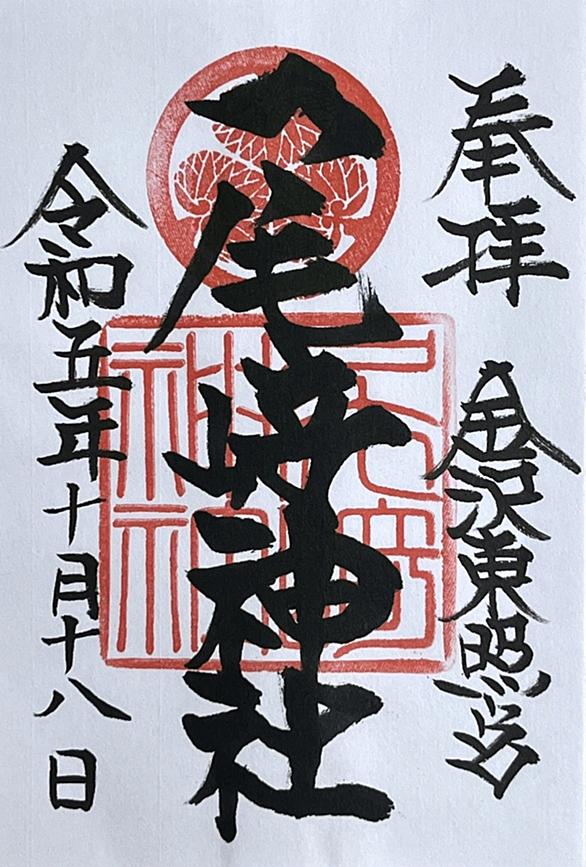 奉拝
金沢東照宮
尾崎神社
令和五年十月十八日